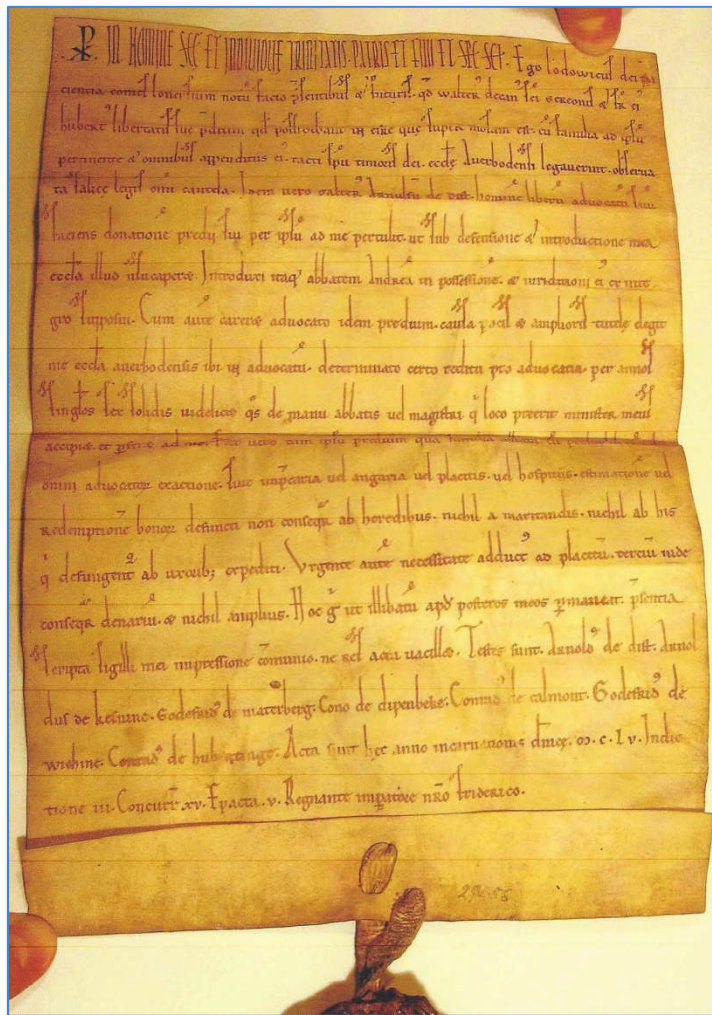 IN NOMINE SCE ET INDIVIDUE TRINITATIS PATRIS ET FILII ET SPC SCI. Ego lodowicus dei pa
ciencia comes loncensium notu facio psentibus & futuris. qd walter decan sci & fr ei
hubert libertatis sue predium qd possidebant in eise que supra mosam est. cu familia ad ipsu
pertinente & omnibus appenditiis ei. tacti spu timoris dei. eccle Averbodensi legaverunt. observa
ta salice legis omi cautela. Idem vero Arnulfu de dist. homine liberu advocatu suu
faciens donatione predii sui per ipsu ad me pertulit. ut sub defensione & introductione mea
eccla illud usucaperet. Introduxi itaq abbatem Andrea in possessione. & iuriditioni ei ex inte
gro supposui. Cum aute careret advocato idem predium. causa pacis & amplioris tutele elegit
me eccla averbodensis ibi in advocatu. determinato certo redditu pro advocatia. per annos
singlos sex solidis videlicet qs de manu abbatis vel magistri q loco preerit minister meus
accipiet et ad me. vero tam ipsu predium qua
omni advocator exactione. sive vel angaria vel placitis. vel hospitiis. estimatione vel
redemptione bonor defuncti non conseqr ab heredibus. nichil a maritandis. nichil ab his
q defungent ab uxorib; expediti. Urgente aute necessitate adduct ad placitu. terciu inde
conseqr denariu. & nichil amplius. Hoc g ut illibatu apd posteros meos pmaneat. psentia
scripta sigilli mei impressione comunio. ne rei acta vacillet. Testes sunt. Arnold de dist. Arnol
dus de kernine. Godefrid de materberg. Cono de dipenbeke. Conrad de calmont. Godefrid de
wihine. Conrad de hub. Acta sunt hec anno incarnationis dnice. m. c. l v. Indic
tione iii. Concurr xv. Epacta. v. Regnante imperatore nro friderico.